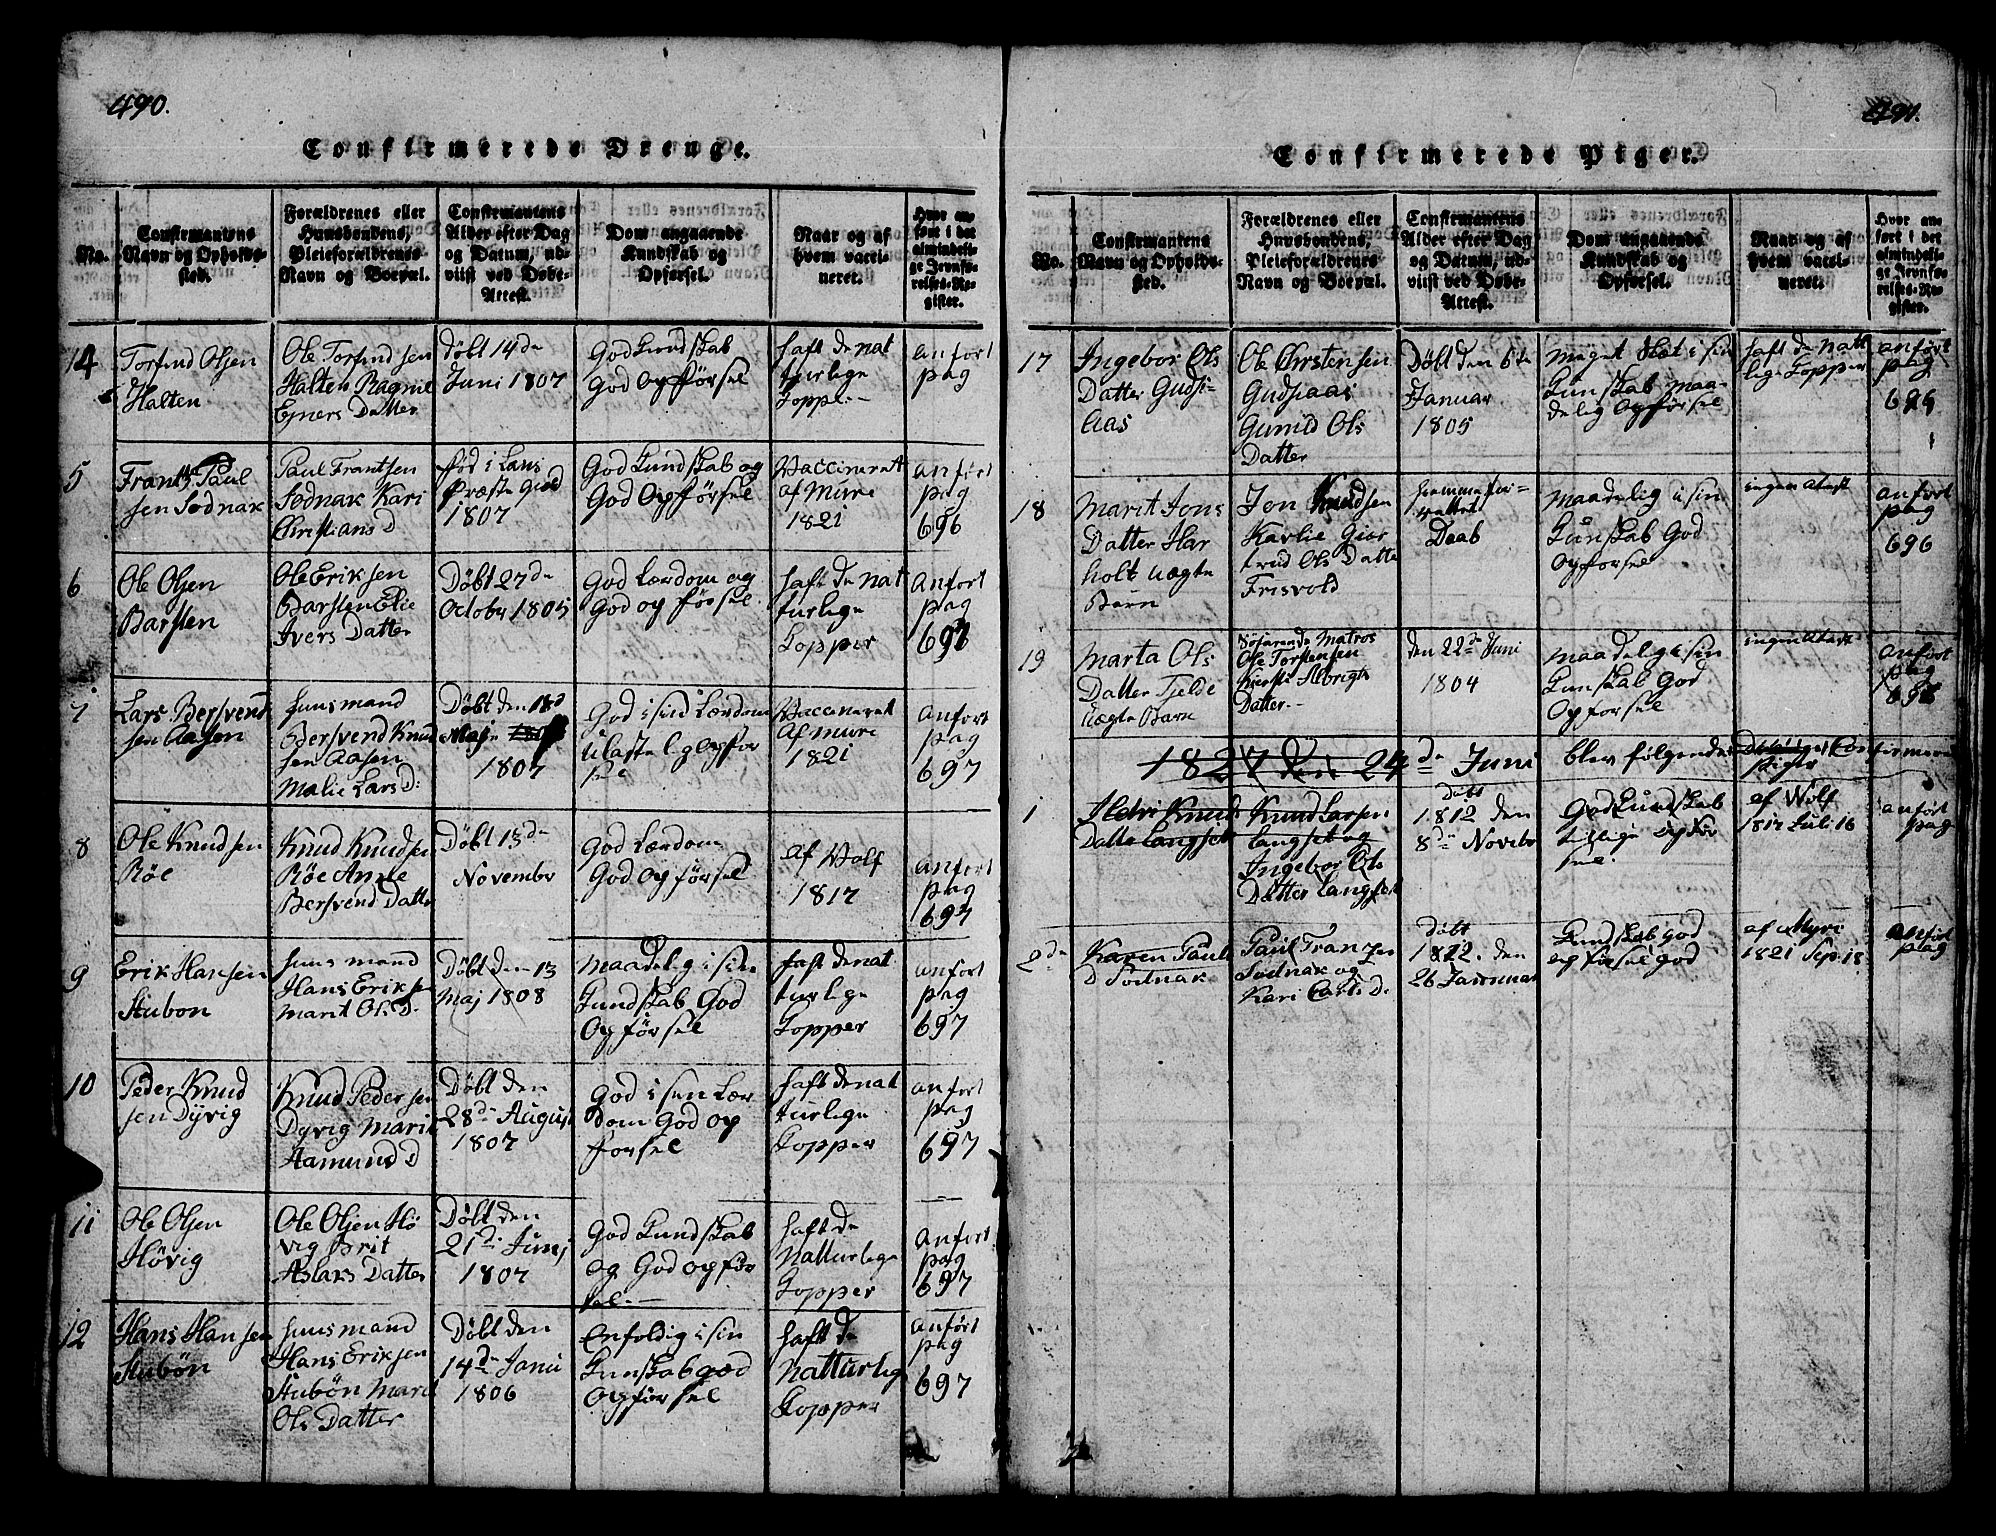 490.
Confirmerede Drenge.
No.
Confirmantens
Navn og Opholds-
sted.
Forældrenes eller
Huusbondens,
Pleieforældrenes
Navn og Boepæl.
Confirmantens
Alder efter Dag
og Datum, ud-
viist ved Døbe-
Attest.
Dom angaaende
Kundskab og
Opførsel.
Naar og af
hvem vacci-
neret.
Hvor an-
ført i det
almindeli-
ge Jevnfø-
relses-Re-
gister.
14
Torfind Olsen
Halten
Ole Torfindsen
Halten Ragnil
Egners Datter
Døbt 14de
Juni 1807
God Kundskab
God Opførsel
haft de nat
turlige
Kopper
Anfort
pag
5
Frantz Paul
sen Sødnak
Paul Frantsen
Sødnak Kari
Christians D
fød i Lans
Præste Gield
1807
God Kundskab og
God Opførsel
Vaccineret
af Muri
1821
anført
pag
696
6
Ole Olsen
Barsten
Ole Eriksen
Barsten Elie
Ivers Datter
Døbt 27de
October 1805
God Lærdom og
God opførsel
haft de nat
turlige
Kopper
Anfort
pag
697
7
Lars Bersvend
sen Aasen
Huusmand
Bersvend Knud
sen Aasen
Malie Lars D:
Døbt den 18d
Maj
1807
God i sin Lærdom
Ulastelig Opfør
sel
Vaccineret
af Muri
1821
Anfort
pag
697
8
Ole Knudsen
Røe
Knud Knudsen
Røe Anne
Bersvend Datte
Døbt 13de
November
God Lærdom
God Opførsel
af Wolf
1817
anfort
pag
697
9
Erik Hansen
Stubon
Huusmand
Hans Eriksen
Marit Ols D.
Døbt den 13
Maj 1808
Maadelig i sin
Kundskab God
Opførsel
haft de nat
turlige
Kopper
anfort
pag
697
10
Peder Knud
sen Dyvig
Knud Pedersen
Dyvig Marit
Aamund D
Døbt den
28de August
1807
God i sin Lær
dom God op
forsel
haft de nat
turlige
Kopper
anfort
pag
697
11
Ole Olsen
Høvig
Ole Olsen Hø
vig Brit
Aslars Datter
Døbt den
21de Junj
1807
God Kundskab
og God opfør
sel.
haft de
Natturlige
Kopper
Anfort
pag
697
12
Hans Hansen
Stubøn
Huusmand
Hans Eriksen
Stubøn Marit
Ols Datter
Døbt den
14de Janu
1806
Enfoldig i sin
Kunskab god
Opførsel
haft de
Natturlig
Kopper
anført
pag
697
491.
Confirmerede Piger.
No.
Confirmantens
Navn og Opholds-
sted.
Forældrenes eller
Huusbondens,
Pleieforældrenes
Navn og Boepæl.
Confirmantens
Alder efter Dag
og Datum, ud-
viist ved Døbe-
Attest.
Dom angaaende
Kundskab og
Opførsel.
Naar og af
hvem vacci-
neret.
Hvor an-
ført i det
almindeli-
ge Jevnfø-
relses-Re-
gister.
17
Ingebor Ols
Datter Gudsi-
Aas
Ole Christensen
Gudsiaas
Gunild Ols
Datter
Døbt den 6te
Januar
1805
Meget slæt i sin
Kunskab maa-
delig Opførsel
haft de natt
lige Kopper
anført
pag
18
Marit Jons
Datter Har
holt uægte
Barn
Jon Knudsen
Karlie Gior
trud Ols Datte
Frisvold
Daab
maadelig i sin
Kunskab God
Opforsel
ingen Atest
anfort
pag
696
19
Marta Ols
Datter Tjelde
Uægte Barn
Søfarende Matros
Ole Torstensen
Kiersti Albrigts
Datter
den 22de Juni
1804
maadelig i sin
Kunskab God
Opforsel
ingen Atest
anfort
pag
1827 den 24de Juni blev følgende Piger
1
Knuds
Datte Langset
Knud Larsen
Langset og
Ingebor Ols
Datter Langset
Døbt
1812 den
8de Novebr
God Kundskab
tillige opfør
sel.
af Wolf
1817 Juli 16
anført
pag
2de
Karen Pauls
D Sødnak
Paul Franzen
Sødnak og
Kari Carls D.
Døbt
1812. den
26 Januar
Kundskab god
opførsel god
af Myri
1821 Sep. 18
anført
pag